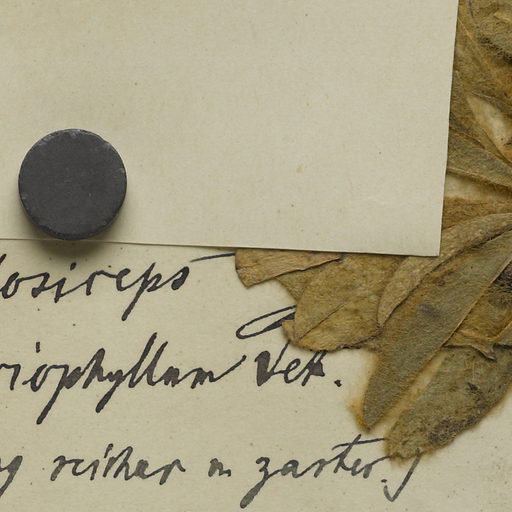 losiceps
riophyllum Vet.
ng reicher u zarter.